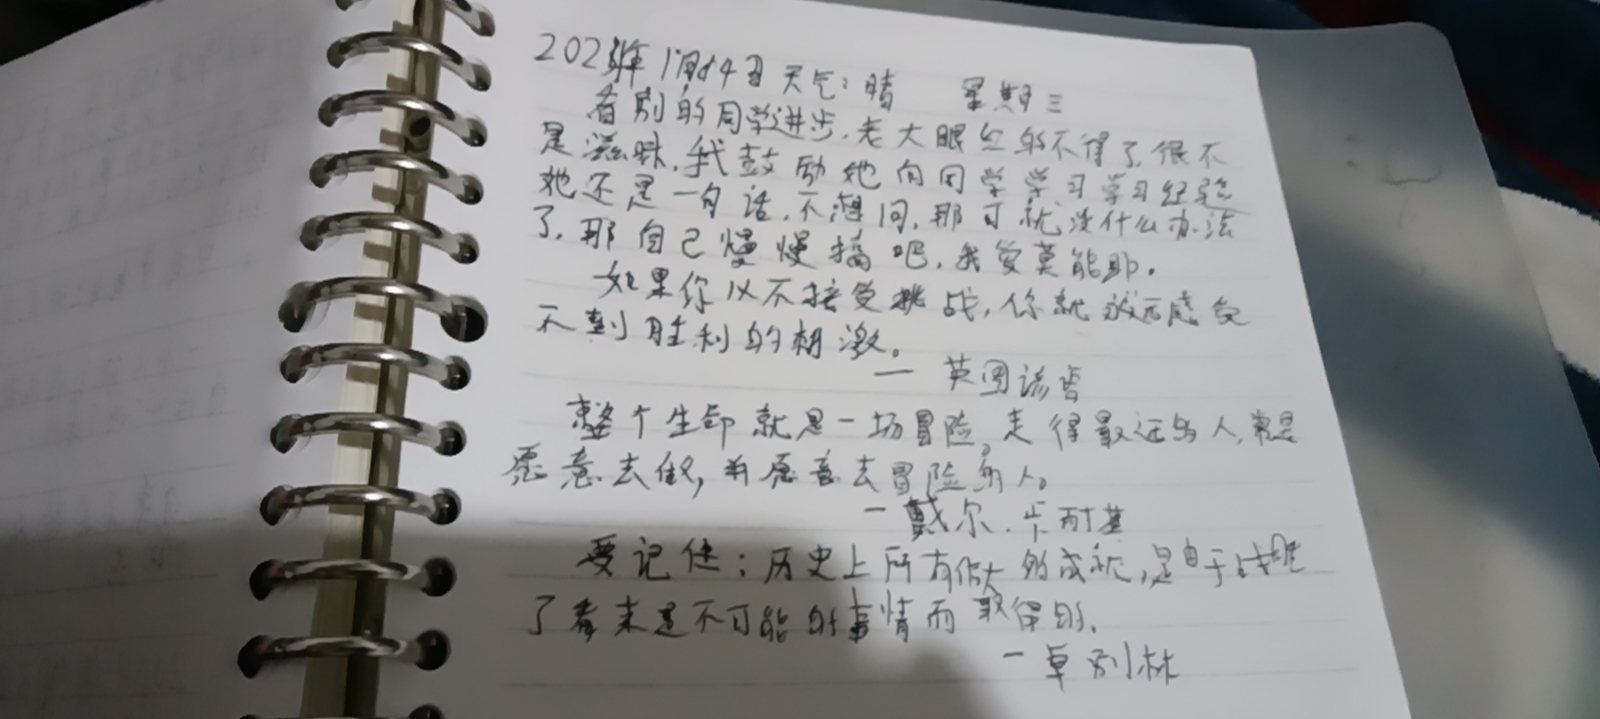 年1月14日天气:晴 星期三
看别的同学进步,老大眼红的不得了,很不
是滋味,我鼓励她向同学学习学习经验
她还是一句话,不想问,那可就没什么办法
了,那自己慢慢搞吧,我爱莫能助。
如果你从不接受挑战,你就永远感受
不到胜利的刺激。
— 英国谚语
整个生命就是一场冒险。走得最远的人,就是
愿意去做,并愿意去冒险的人。
— 戴尔.卡耐基
要记住:历史上所有伟大的成就,是由于战胜
了看来是不可能的事情而取得的.
— 卓别林